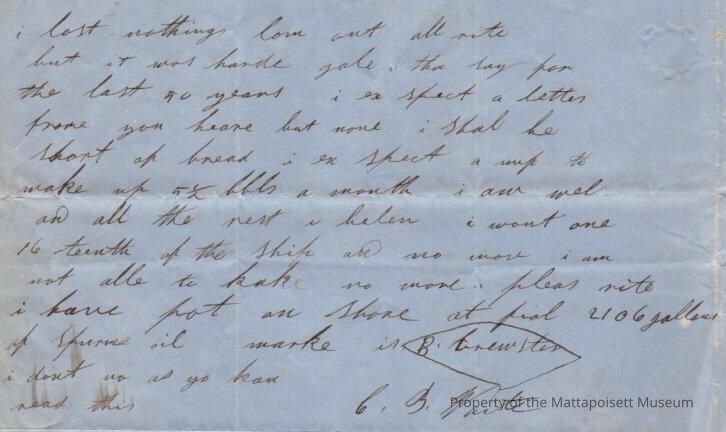 i lost nothing com out all rite
but it was harde gale. tha say for
the last 50 years i ex spect a letter
frome you heare but none i shal be
short of bread i ex spect a
wake up 5½ bbls a month i am wel
and all the rest i belen i wont one
16 teenth of the ship and no more i am
not alle to kake no more.. pleas rite
i have pot on shore at fial 2106 gallons
of spurm oil marke is B. Brewster
i dont no as yo kan
read this C. B.
Property of the Mattapoisett Museum